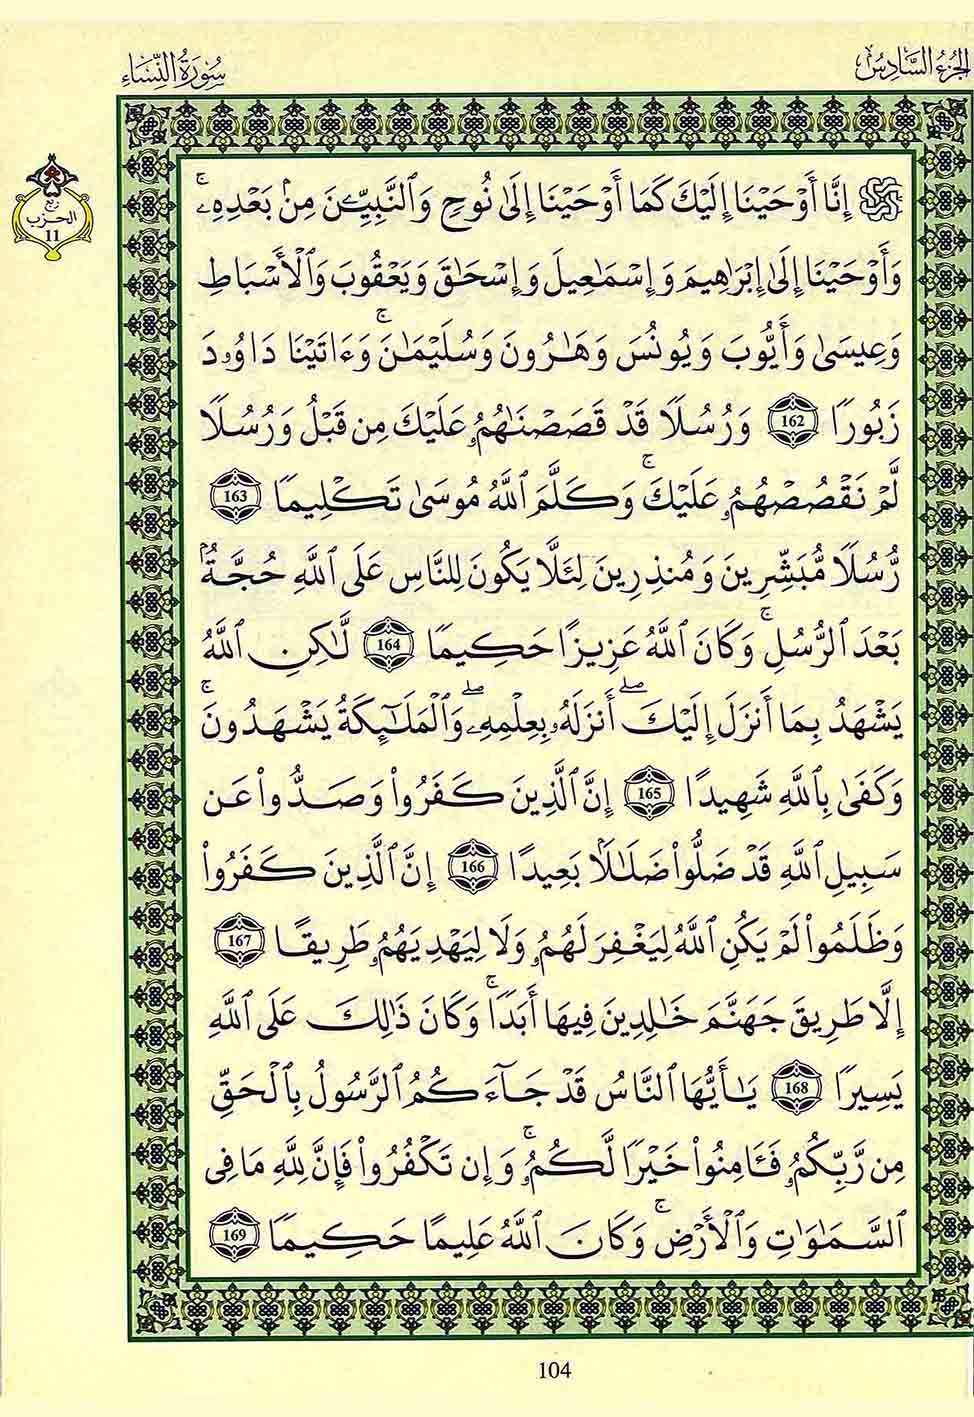 الجزء السادس
سورة النساء
ربع
الحزب
11
إِنَّا أَوْحَيْنَا إِلَيْكَ كَمَا أَوْحَيْنَا إِلَىٰ نُوحٍ وَٱلنَّبِيِّـۧنَ مِنۢ بَعْدِهِۦ ۚ
وَأَوْحَيْنَا إِلَىٰ إِبْرَٰهِيمَ وَإِسْمَـٰعِيلَ وَإِسْحَـٰقَ وَيَعْقُوبَ وَٱلْأَسْبَاطِ
وَعِيسَىٰ وَأَيُّوبَ وَيُونُسَ وَهَـٰرُونَ وَسُلَيْمَـٰنَ ۚ وَءَاتَيْنَا دَاوُۥدَ
زَبُورًا 162 وَرُسُلًا قَدْ قَصَصْنَـٰهُمُۥ عَلَيْكَ مِن قَبْلُ وَرُسُلًا
لَّمْ نَقْصُصْهُمُۥ عَلَيْكَ ۚ وَكَلَّمَ ٱللَّهُ مُوسَىٰ تَكْلِيمًا 163
رُّسُلًا مُّبَشِّرِينَ وَمُنذِرِينَ لِئَلَّا يَكُونَ لِلنَّاسِ عَلَى ٱللَّهِ حُجَّةٌۢ
بَعْدَ ٱلرُّسُلِ ۚ وَكَانَ ٱللَّهُ عَزِيزًا حَكِيمًا 164 لَّـٰكِنِ ٱللَّهُ
يَشْهَدُ بِمَا أَنزَلَ إِلَيْكَ ۖ أَنزَلَهُۥ بِعِلْمِهِۦ ۖ وَٱلْمَلَـٰٓئِكَةُ يَشْهَدُونَ ۚ
وَكَفَىٰ بِٱللَّهِ شَهِيدًا 165 إِنَّ ٱلَّذِينَ كَفَرُواْ وَصَدُّواْ عَن
سَبِيلِ ٱللَّهِ قَدْ ضَلُّواْ ضَلَـٰلًۢا بَعِيدًا 166 إِنَّ ٱلَّذِينَ كَفَرُواْ
وَظَلَمُواْ لَمْ يَكُنِ ٱللَّهُ لِيَغْفِرَ لَهُمُۥ وَلَا لِيَهْدِيَهُمُۥ طَرِيقًا 167
إِلَّا طَرِيقَ جَهَنَّمَ خَـٰلِدِينَ فِيهَا أَبَدًا ۚ وَكَانَ ذَٰلِكَ عَلَى ٱللَّهِ
يَسِيرًا 168 يَـٰأَيُّهَا ٱلنَّاسُ قَدْ جَآءَكُمُ ٱلرَّسُولُ بِٱلْحَقِّ
مِن رَّبِّكُمُۥ فَـَٔامِنُواْ خَيْرًا لَّكُمُۥ ۚ وَإِن تَكْفُرُواْ فَإِنَّ لِلَّهِ مَا فِى
ٱلسَّمَـٰوَٰتِ وَٱلْأَرْضِ ۚ وَكَانَ ٱللَّهُ عَلِيمًا حَكِيمًا 169
104